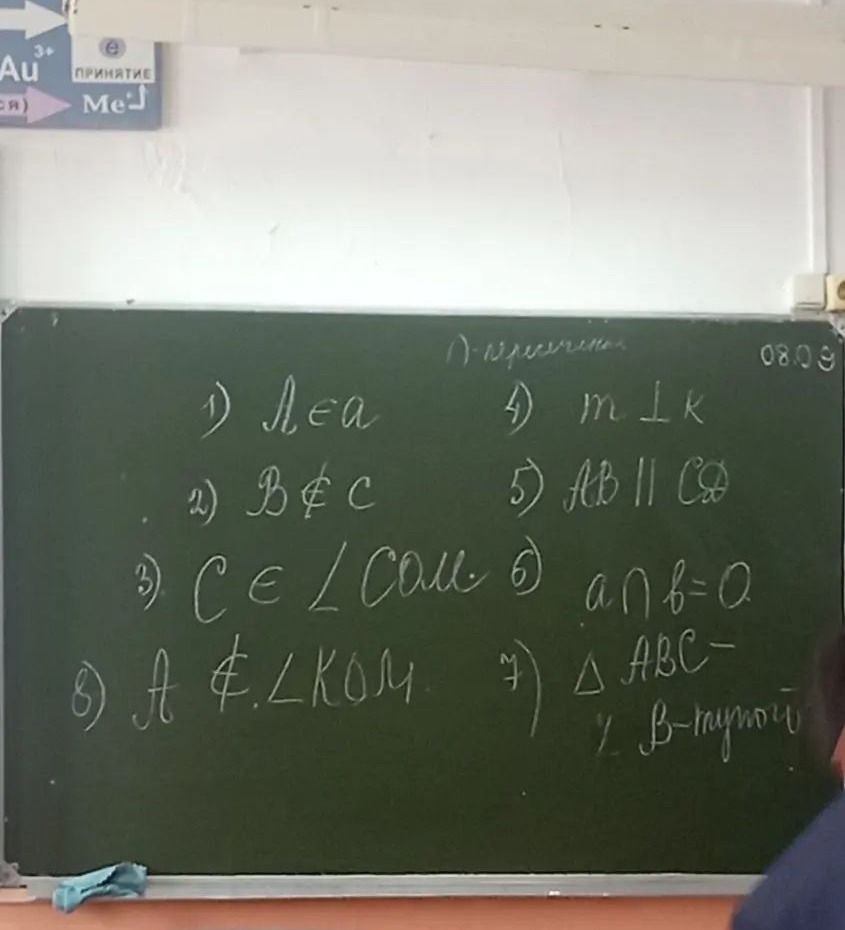 Au³⁺
e
ПРИНЯТИЕ
ся)
Me
∩-пересечение
08.09
1) A ∈ a
4) m ⊥ k
2) B ∉ c
5) AB || CD
3) C ∈ ∠COM.
6) a ∩ b = O.
8) A ∉ ∠KOM
7) △ ABC –
∠ B-тупой